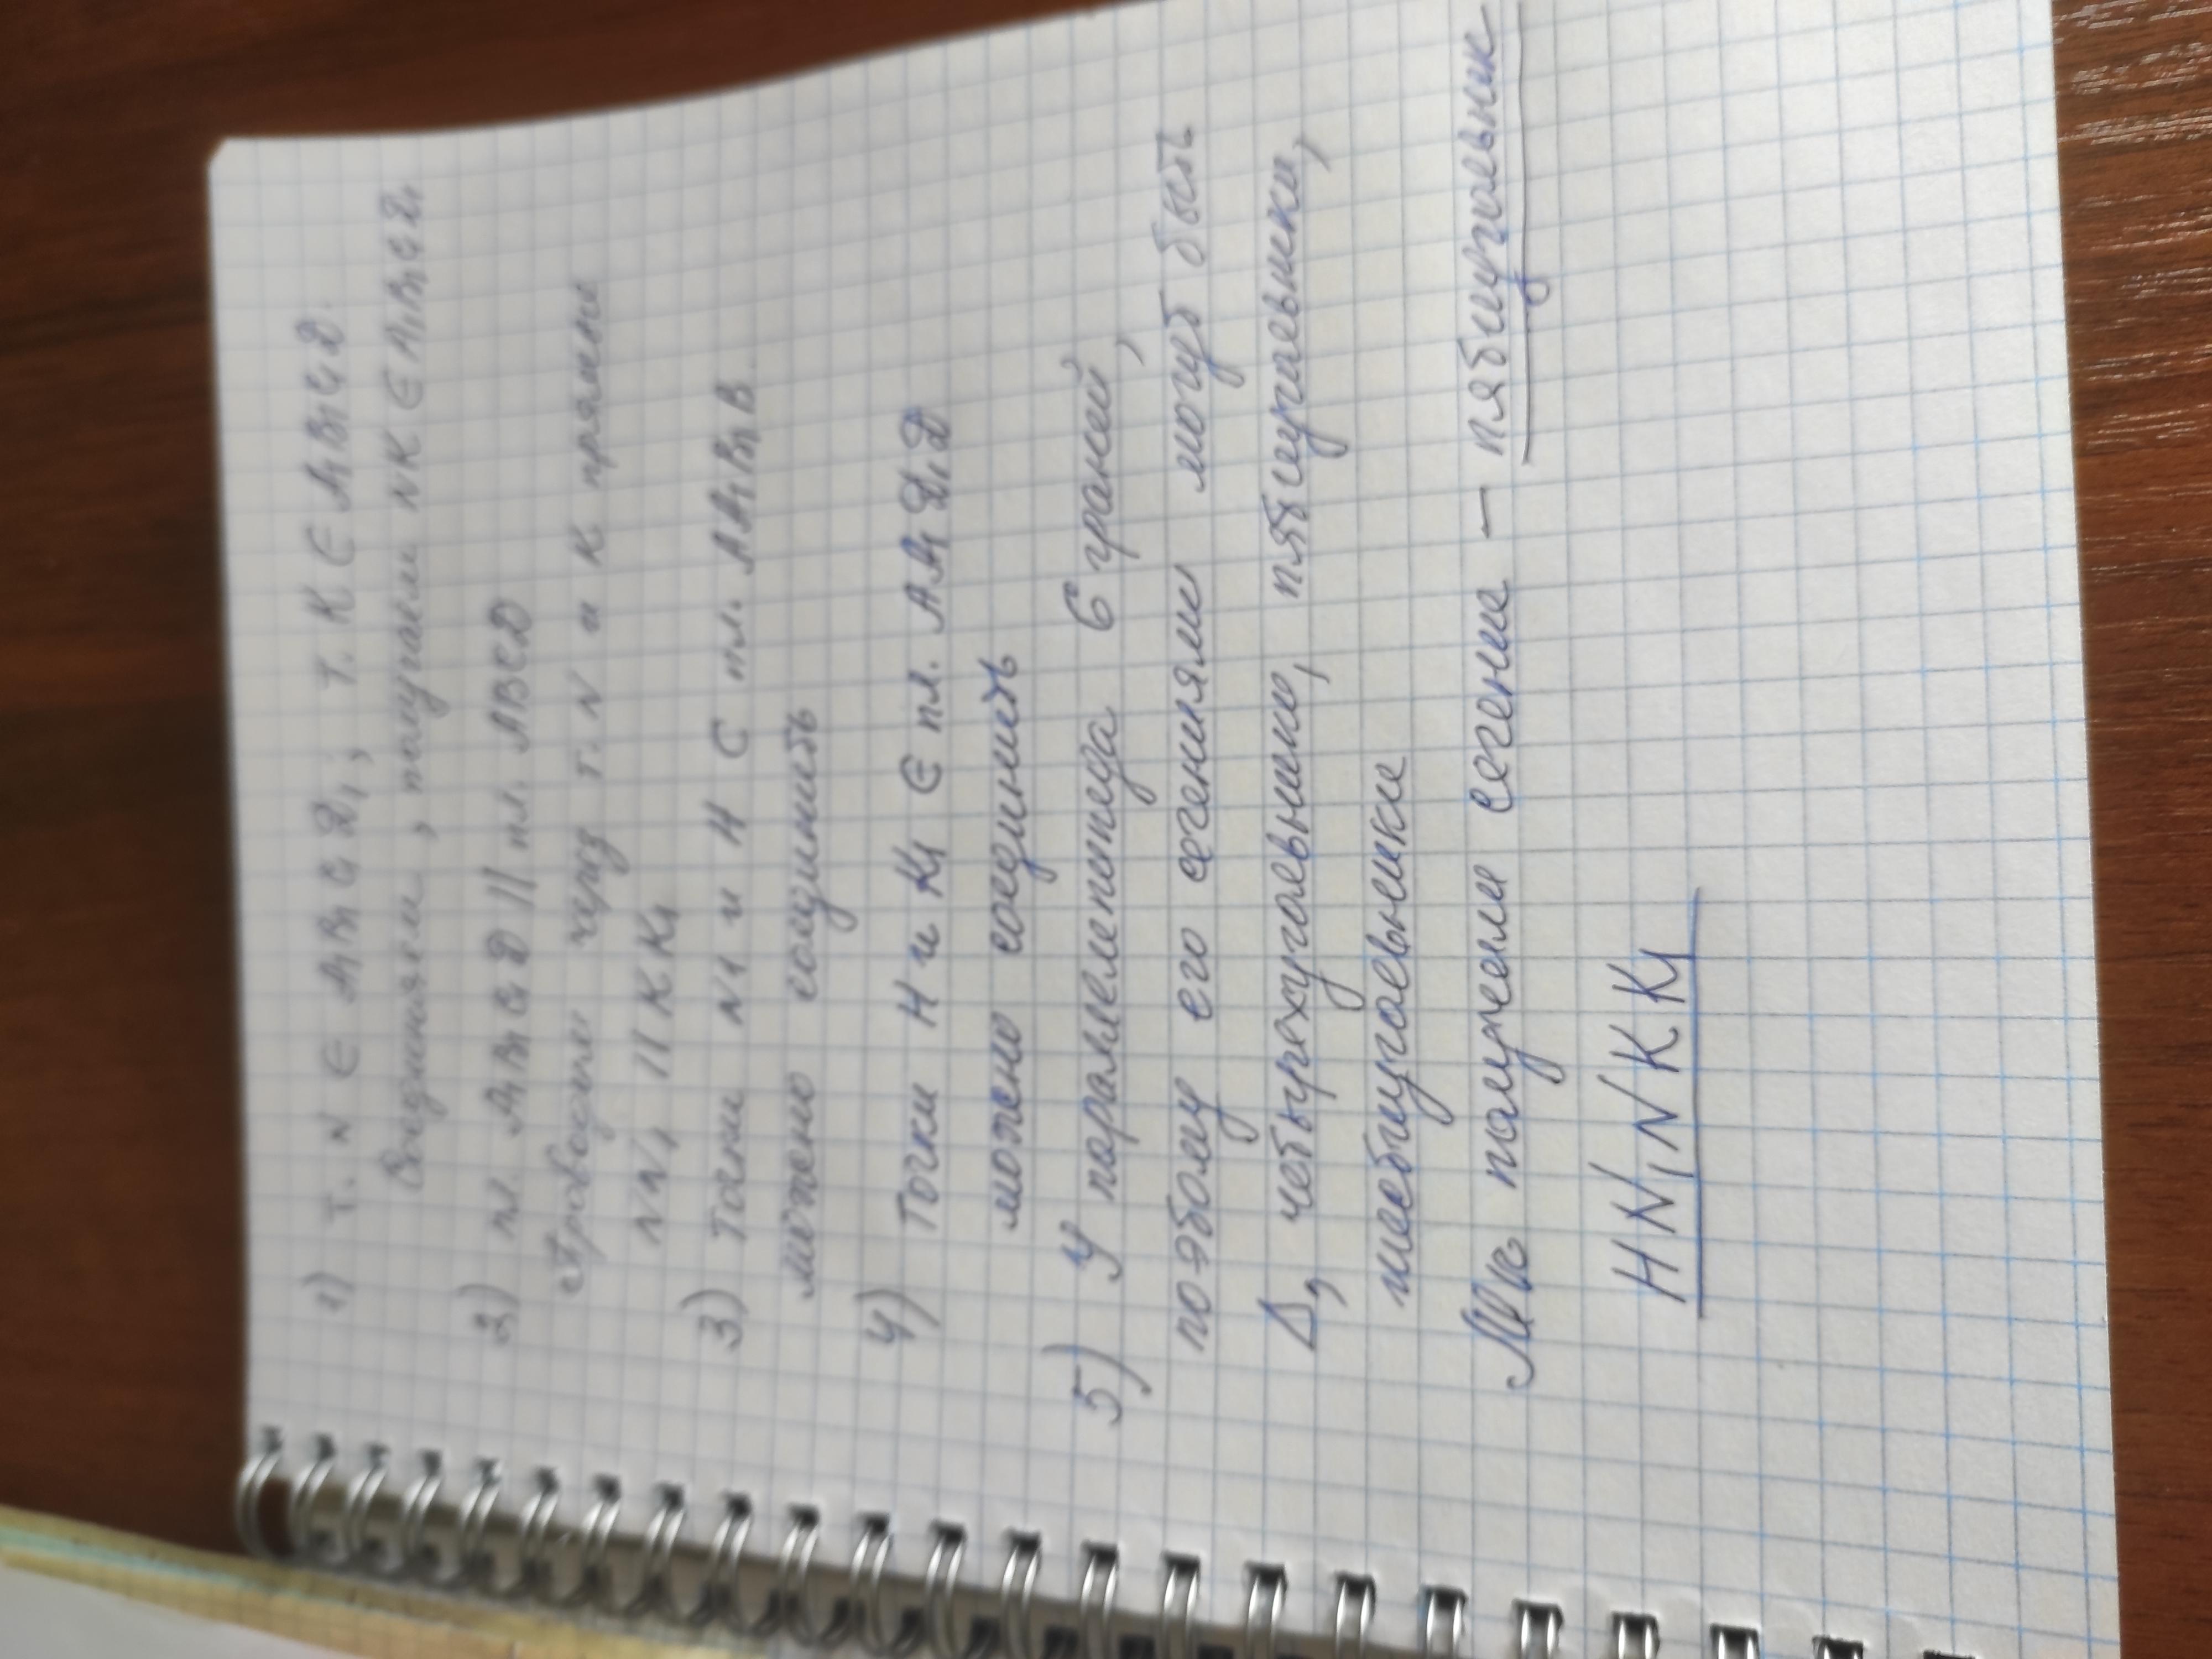 1) т. N ∈ A₁B₁C₁D₁; т. K ∈ A₁B₁C₁D.
Соединяем, получаем NK ∈ A₁B₁C₁D₁
2) пл. A₁B₁C₁D // пл. ABCD
Проводим через т. N и K прямые
NN₁ // KK₁
3) Точки N1 и H ⊂ пл. AA₁B₁B
можно соединить
4) Точки H и K₁ ∈ пл. AA₁D₁D
можно соединить
5) У параллелепипеда 6 граней,
поэтому его сечениями могут быть
Δ, четырехугольники, пятиугольники,
шестиугольники
Мы получили сечение – пятиугольник
HN₁NKK₁